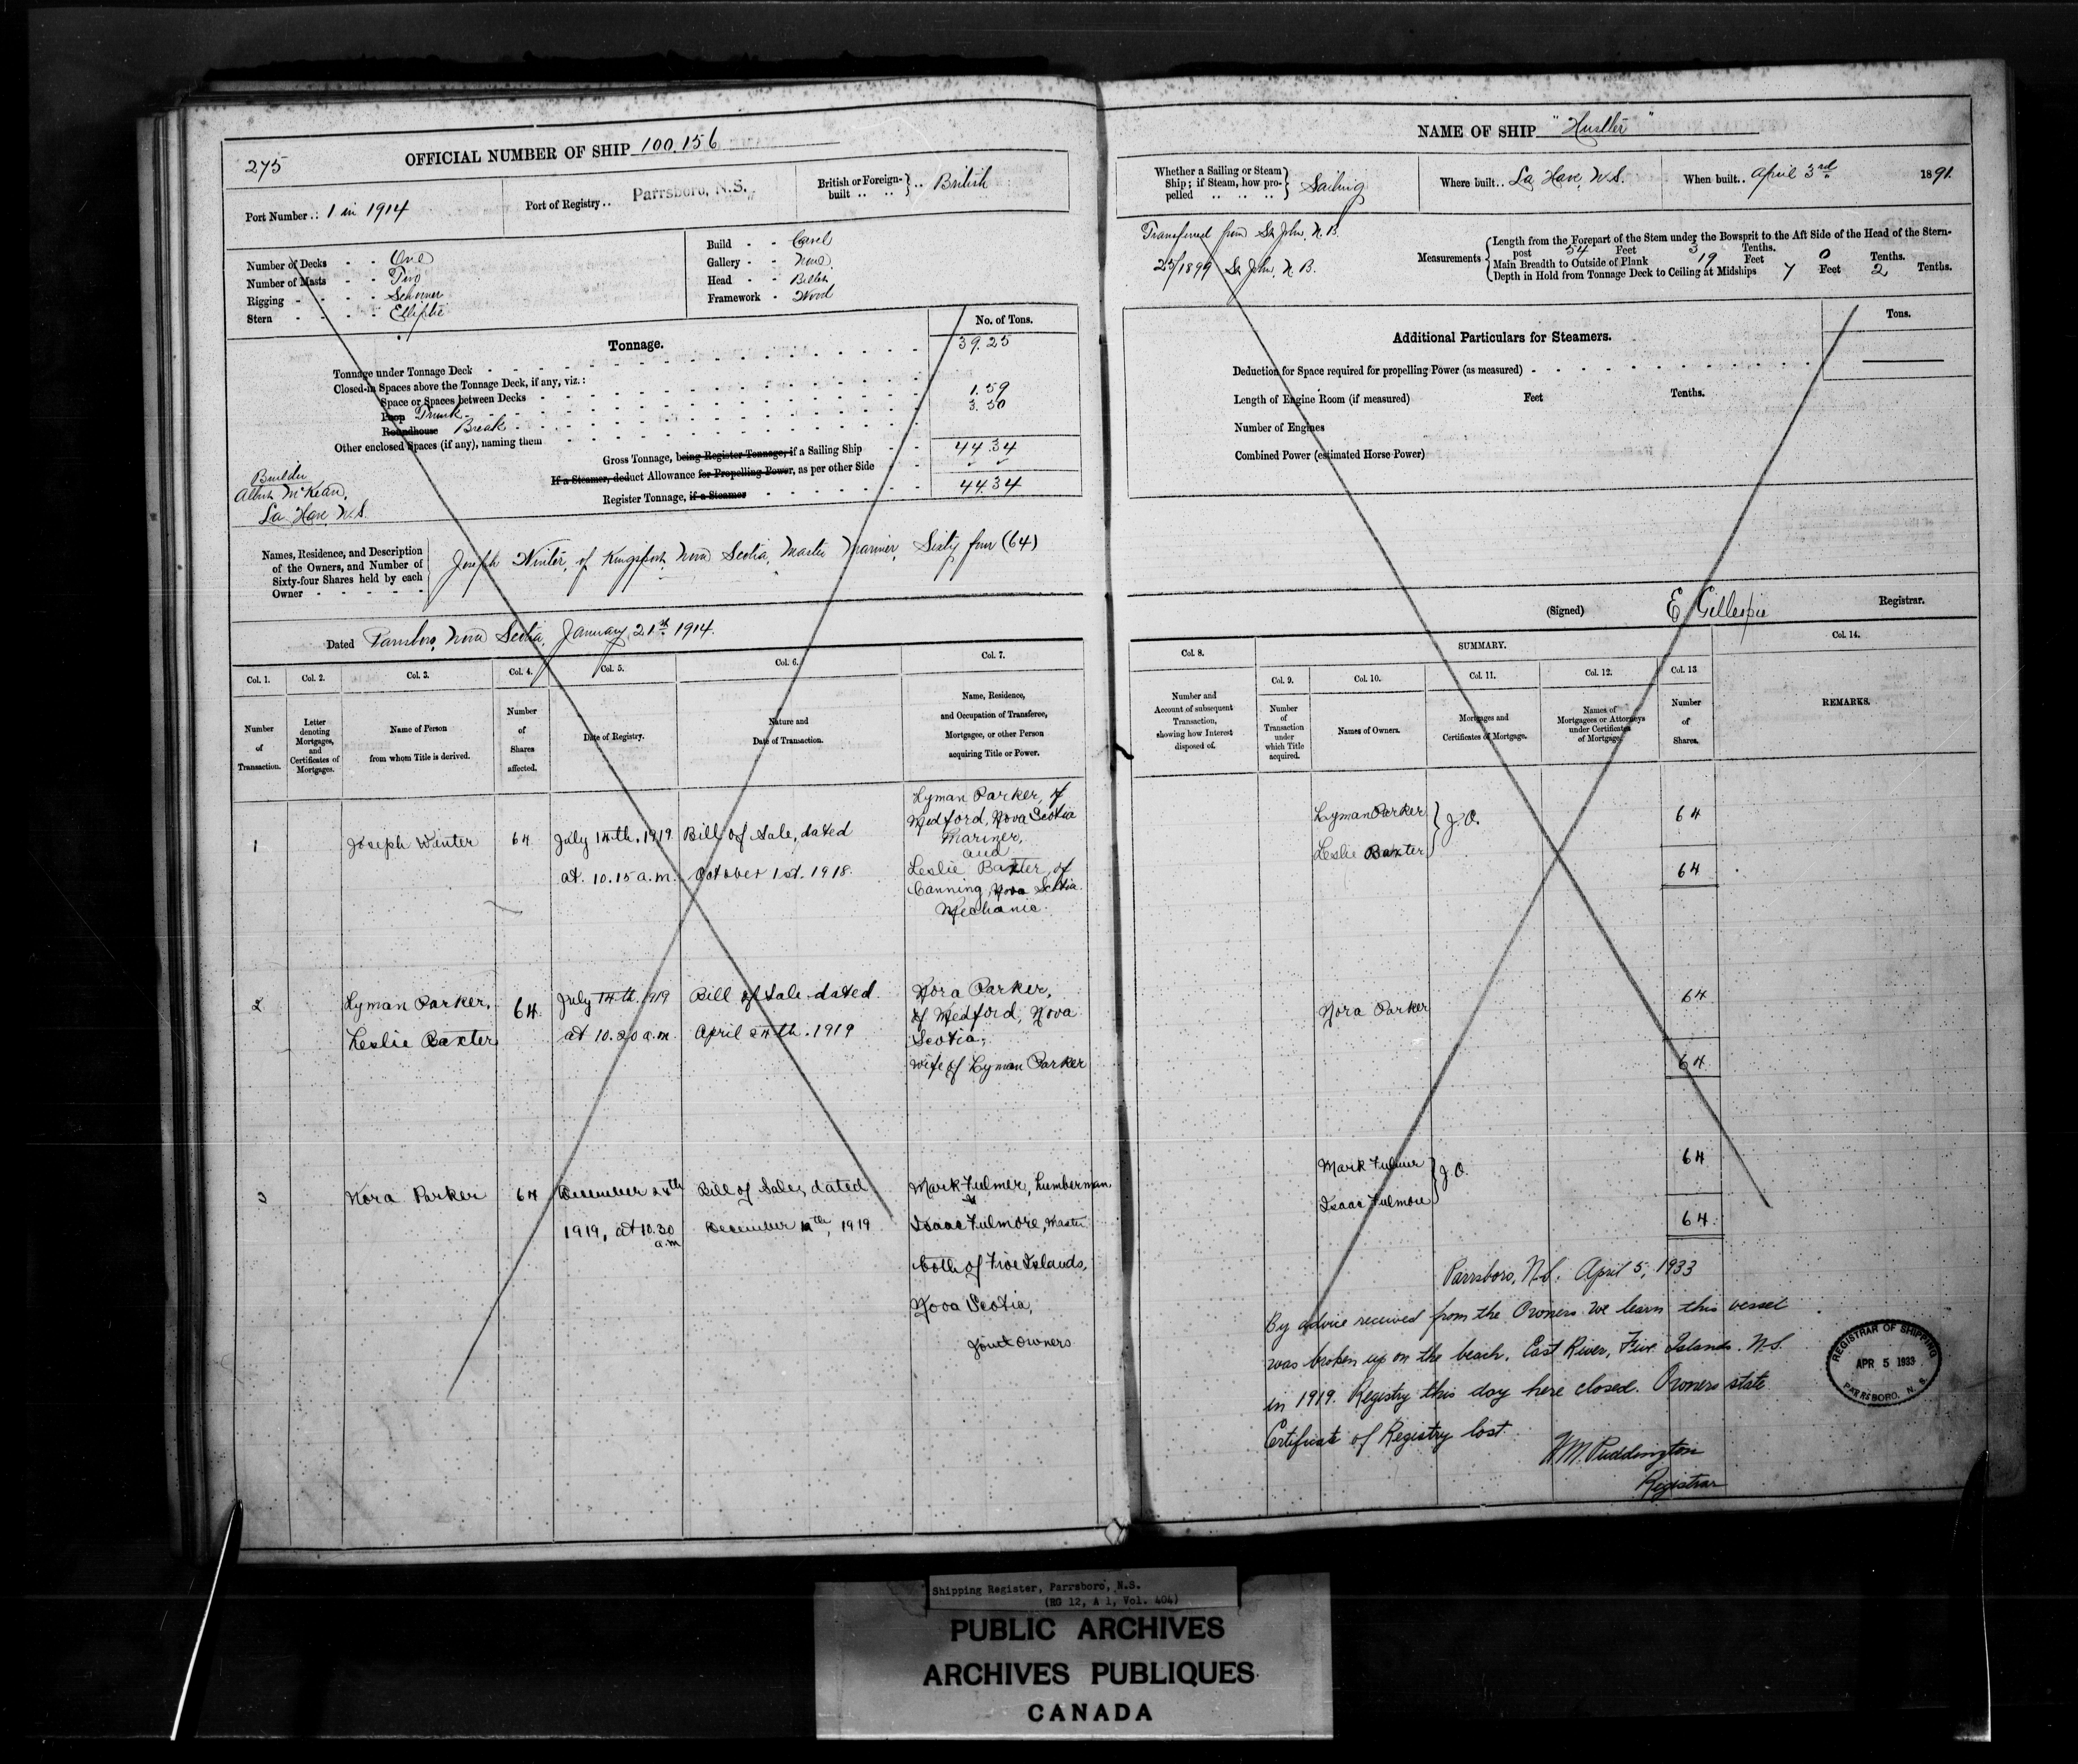 275
OFFICIAL NUMBER OF SHIP 100.156
Port Number .: 1 in 1914
Port of Registry .. Parrsboro, N.S.
British or Foreign-built .. British
Number of Decks - - One
Number of Masts - - Two
Rigging - - - - Schooner
Stern - - - - Elliptic
Build - - Carvel
Gallery - - None
Head - - Billet
Framework - Wood
No. of Tons.
Tonnage.
Tonnage under Tonnage Deck 39.25
Closed-in Spaces above the Tonnage Deck, if any, viz.:
Space or Spaces between Decks
Poop Trunk 1.59
Roundhouse Break 3.50
Other enclosed Spaces (if any), naming them
Gross Tonnage, being Register Tonnage, if a Sailing Ship 44.34
If a Steamer, deduct Allowance for Propelling Power, as per other Side
Register Tonnage, if a Steamer 44.34
Builder
Albert McKean,
La Have N.S.
Names, Residence, and Description
of the Owners, and Number of
Sixty-four Shares held by each
Owner - - - - -
Joseph Winter, of Kingsport, Nova Scotia, Master Mariner, Sixty four (64)
Dated Parrsboro, Nova Scotia, January 21st 1914.
Col. 1. Col. 2. Col. 3. Col. 4. Col. 5. Col. 6. Col. 7.
Number
of
Transaction.
Letter
denoting
Mortgages,
and
Certificates of
Mortgages.
Name of Person
from whom Title is derived.
Number
of
Shares
affected.
Date of Registry.
Nature and
Date of Transaction.
Name, Residence,
and Occupation of Transferee,
Mortgagee, or other Person
acquiring Title or Power.
1
Joseph Winter
64
July 14th. 1919
at. 10.15 a.m.
Bill of Sale, dated
October 1st. 1918.
Lyman Parker, of
Medford, Nova Scotia
Mariner,
and
Leslie Baxter, of
Canning, Nova Scotia.
Mechanic.
2
Lyman Parker,
Leslie Baxter
64
July 14th. 1919
at 10.20 a.m.
Bill of Sale dated
April 24th. 1919
Nora Parker,
of Medford, Nova
Scotia,
wife of Lyman Parker
3
Nora Parker
64
December 24th
1919, at 10.30
a.m
Bill of Sale, dated
December th, 1919
Mark Fulmer, Lumberman,
&
Isaac Fulmore, Master
both of Five Islands,
Nova Scotia,
Joint owners
NAME OF SHIP "Hustler"
Whether a Sailing or Steam
Ship; if Steam, how pro-
pelled .. .. ..
Sailing
Where built.. La Have, N.S.
When built.. April 3rd 1891.
Transferred from St. John, N.B.
25/1899 St. John, N.B.
Measurements
Length from the Forepart of the Stem under the Bowsprit to the Aft Side of the Head of the Stern-
post 54 Feet 3 Tenths.
Main Breadth to Outside of Plank 19 Feet 0 Tenths.
Depth in Hold from Tonnage Deck to Ceiling at Midships 7 Feet 2 Tenths.
Tons.
Additional Particulars for Steamers.
Deduction for Space required for propelling Power (as measured)
Length of Engine Room (if measured) Feet Tenths.
Number of Engines
Combined Power (estimated Horse Power)
(Signed) E Gillespie Registrar.
SUMMARY.
Col. 8. Col. 9. Col. 10. Col. 11. Col. 12. Col. 13 Col. 14.
Number and
Account of subsequent
Transaction,
showing how Interest
disposed of.
Number
of
Transaction
under
which Title
acquired.
Names of Owners.
Mortgages and
Certificates of Mortgage.
Names of
Mortgagees or Attorneys
under Certificates
of Mortgage.
Number
of
Shares.
REMARKS.
Lyman Parker
Leslie Baxter
J.O.
64
64
Nora Parker
64
64
Mark Fulmer
Isaac Fulmore
J.O.
64
64
Parrsboro, N.S. April 5, 1933
By advice received from the Owners we learn this vessel
was broken up on the beach, East River, Five Islands. N.S.
in 1919. Registry this day here closed. Owners state
Certificate of Registry lost.
W.M. Puddington
Registrar
REGISTRAR OF SHIPPING
APR 5 1933
PARRSBORO, N. S.
Shipping Register, Parrsboro, N.S.
(RG 12, A 1, Vol. 404)
PUBLIC ARCHIVES
ARCHIVES PUBLIQUES
CANADA